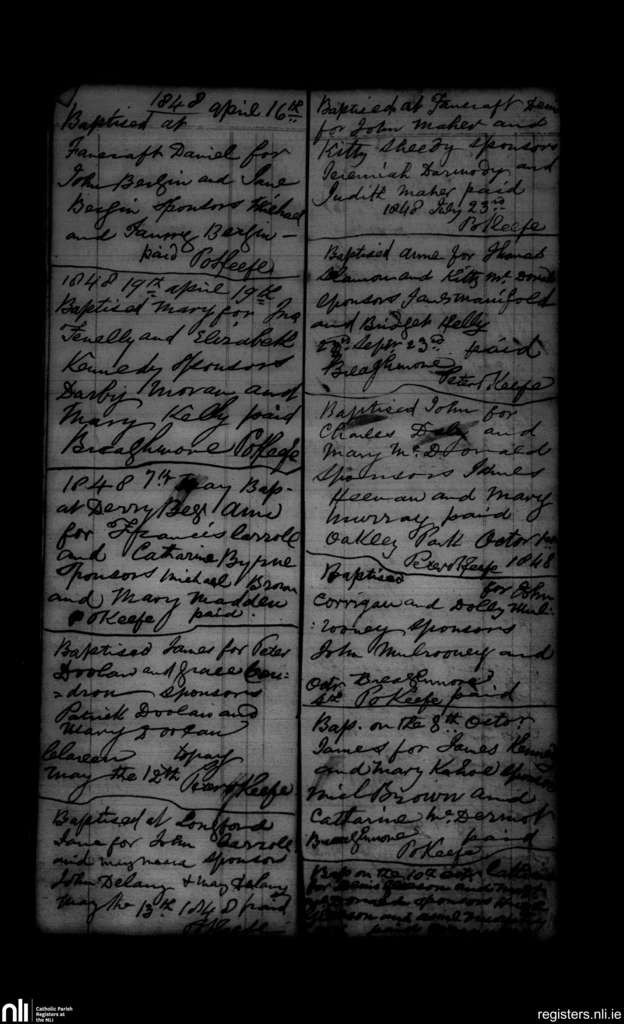 1848 april 16th
Baptised at
Fancraft Daniel for
John Bergin and Jane
Bergin Sponsors Michael
and Fanny Bergin –
paid POKeefe
1848 19th april 19th
Baptised Mary for Jno
Fenelly and Elizabeth
Kennedy Sponsors
Darby Moran and
Mary Kelly paid
Breaghmore POKeefe
1848 7th May Bap-
at Derry Beg
for Francis Carroll
and Catharine Byrne
Sponsors Michael Brown
and Mary Madden
POKeefe paid
Baptised James for Peter
Doolan and Grace Con:
=dron Sponsors
Patrick Doolan and
Mary Doolan
Clareen to pay
May the 12th Peter OKeefe
Baptised at Longford
Jane for John Carroll
and Sponsor
John Delany & Mary Delany
May the 13th 1848 paid
POKeefe
Baptised at Fancraft
for John Maher and
Kitty Sheedy Sponsors
Jeremiah Darmody and
Judith Maher paid
1848 July 23rd
POKeefe
Baptised Anne for Thomas
and Kitty Mc
Sponsors Manifold
and Bridget Kelly
Sepr 23rd paid
Breaghmore
Peter OKeefe
Baptised John for
Charles Daly and
Mary Mc Donald
Sponsors James
Heenan and Mary
Murray paid
Oakley Park Octor
Peter OKeefe 1848
Baptised for John
Corrigan and Dolly Mul:
:rooney Sponsors
John Mulrooney and
Octr Breaghmore
POKeefe paid
Bap. on the 8th Octor
James for James
and Mary Kahoe Sponsors
Michl Brown and
Catharine Mc Dermot
Breaghmore paid
POKeefe
Bap on the 10th Octor
for and
Sponsors
and
paid
nli
Catholic Parish
Registers at
the NLI
registers.nli.ie